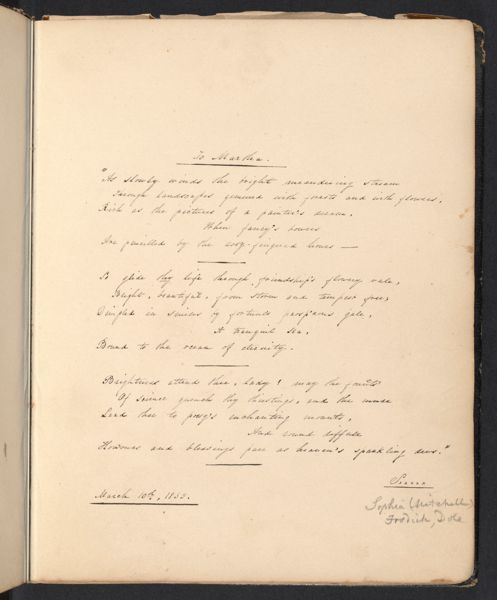 To Martha.
"As slowly winds the bright meandering stream
Through landscapes gemmed with forests and with flowers,
Rich as the pictures of a painter's dream.
When fancy's bowers
Are pencilled by the rosy-fingered hours —
So glide thy life through friendship's flowery vale,
Bright, beautiful, from storm and tempest free,
Dimpled in smiles by fortune's gale,
A tranquil sea,
Bound to the ocean of eternity.
Brightness attend thee, lady! may the founts
Of science quench thy thirstings, and the muse
Lead thee to poesy's enchanting mounts,
And round diffuse
and blessings pure as heaven's sparkling dews."
March 10th, 1833.
Sophia (Mitchell)